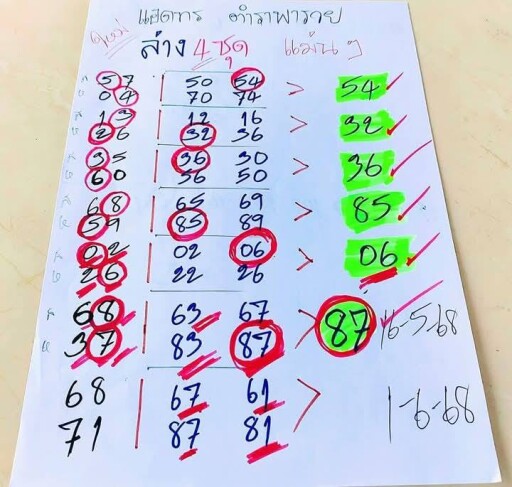 แฮ็ดทร ตำราพารวย
ใหม่ ล่าง 4 ชุด แม่นๆ
บ 57 50 54 > 54 ✓
ล 04 70 74
บ 13 12 16 > 32 ✓
ล 26 32 36
บ 35 36 30 > 36 ✓
ล 60 56 50
บ 68 65 69 > 85 ✓
ล 59 85 89
บ 02 02 06 > 06 ✓
ล 26 22 26
บ 68 63 67 > 87 16-5-68
ล 37 83 87
68 67 61 > 1-6-68
71 87 81